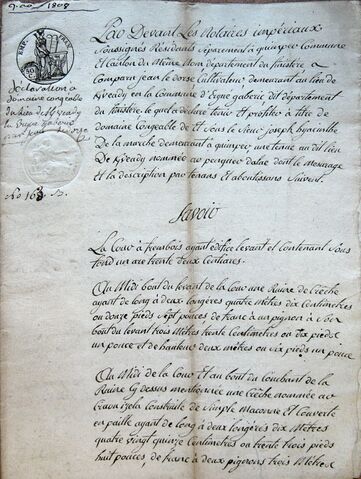 9. aoû 1808
EMP. FRAN.
Déclaration à
domaine congeable
du lieu de Kveady
No 163. B.
Par Devant Les Notaires impériaux
Soussignés Résidents séparément à quimper Commune
et Canton du Même Nom département du finistère a
Comparu jean le dorse Cultivateur demeurant au lieu de
Kveady en la Commune d'Ergué gaberic dit département
du finistère, lequel a déclaré tenir et profiter à titre de
domaine Congeable de et sous le sieur joseph hyacinthe
de la marche demeurant à quimper, une tenue au dit lieu
De Kveady nommée au penquer dalaë dont le mesurage
et la description par tenans et aboutissans Suivent.
Savoir
La Cour à frambois ayant édifice levant et contenant sous
fond un are trente deux Centiares.
Au Midi bout du levant de la Cour une Ruine de Crèche
ayant de long à deux longères quatre mètres dix Centimètres
ou douze pieds Sept pouces de franc à un pignon à Son
bout du levant trois Mètres trente Centimètres ou dix pieds
un pouce et de hauteur deux mètres ou Six pieds un pouce
Au Midi de la Cour et au bout du Couchant de la
Ruine Cy dessus mentionnée une Crèche nommée ar
Construite de Simple maçonne et Couverte
en paille ayant de long à deux longères dix Mètres
quatre vingt quinze Centimètres ou trente trois pieds
huit pouces, de franc à deux pignons trois Mètres